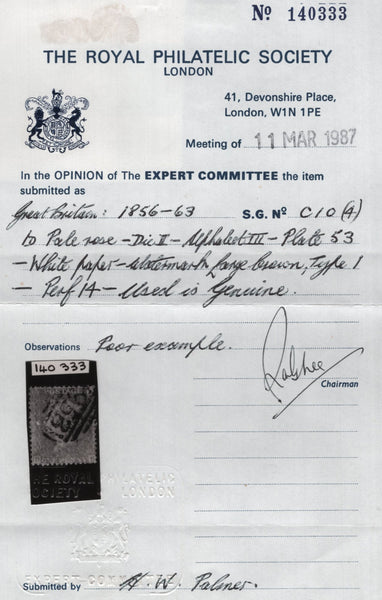 Nº 140333
THE ROYAL PHILATELIC SOCIETY
LONDON
41, Devonshire Place,
London, W1N 1PE
Meeting of 11 MAR 1987
In the OPINION of The EXPERT COMMITTEE the item
submitted as
Great Britain: 1856-63 S.G. Nº C10(4)
to Pale rose - Die II - Alphabet III - Plate 53
- White paper - Watermark Large Crown, Type 1
- Perf 14 - Used is Genuine.
Observations Poor example.
Chairman
140 333
THE ROYAL PHILATELIC
SOCIETY LONDON
EXPERT COMMITTEE
Submitted by H. W. Palmer.